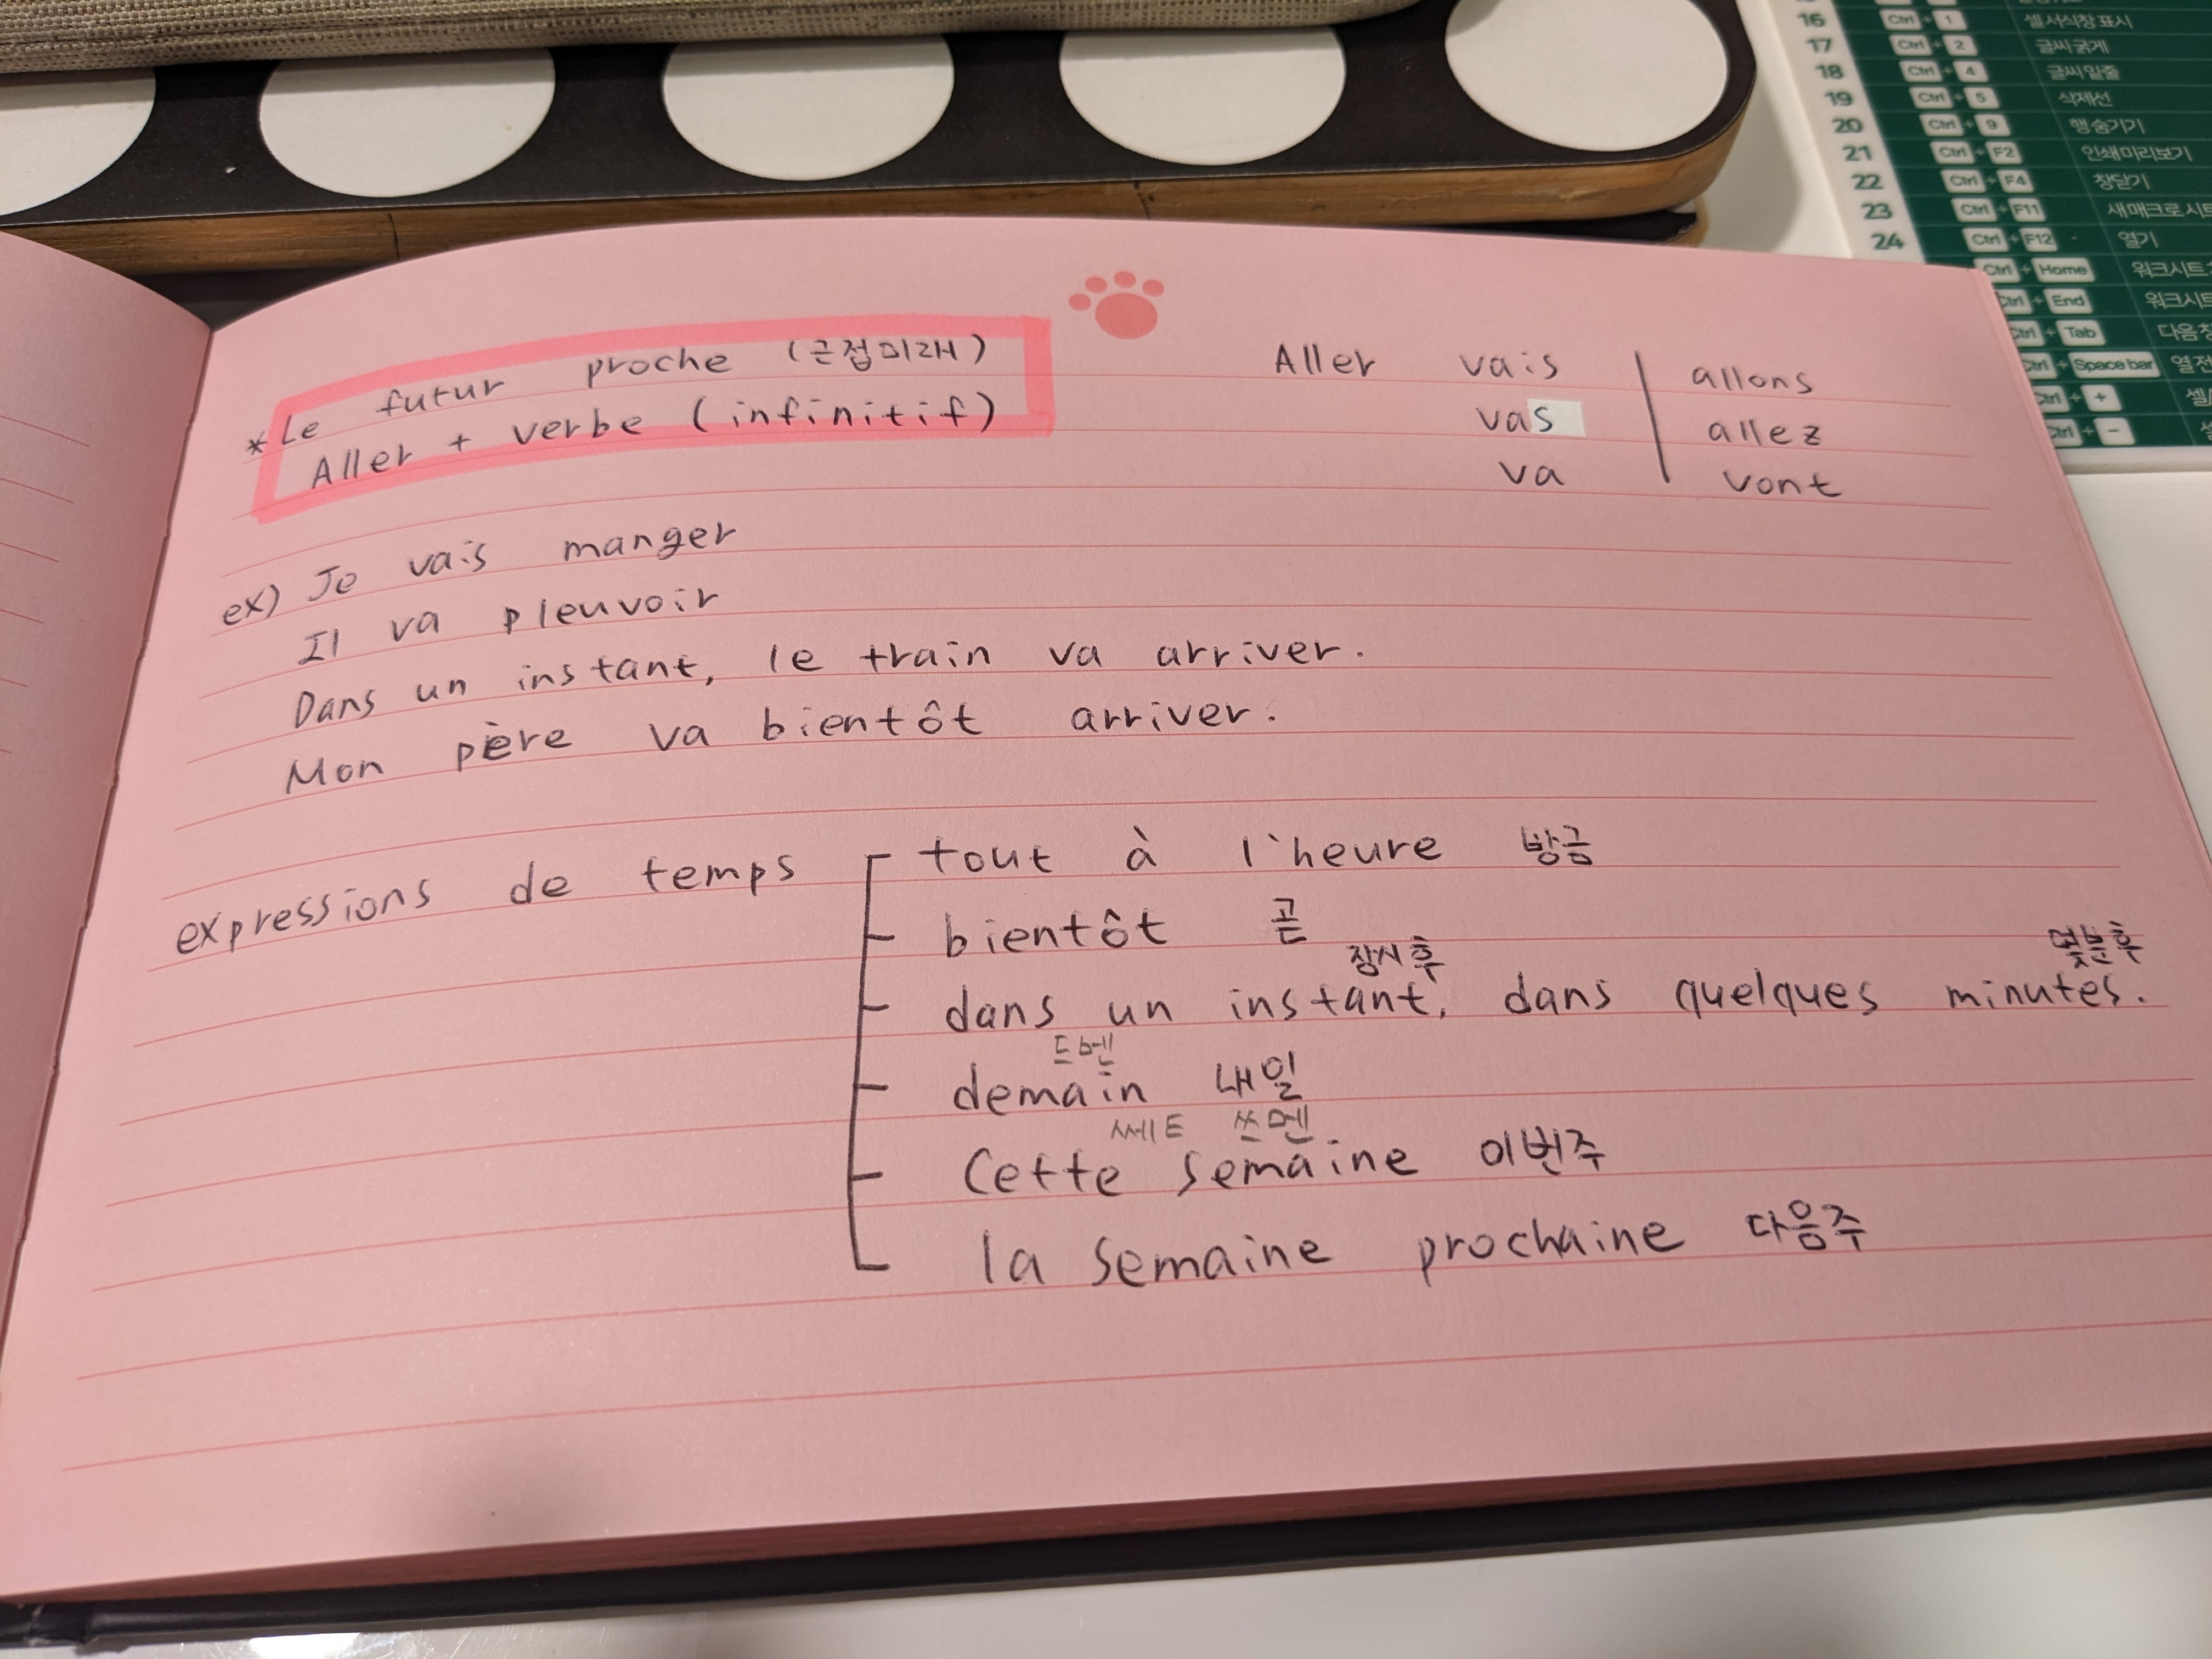 16 Ctrl + 1 셀 서식창 표시
17 Ctrl + 2 글씨 굵게
18 Ctrl + 4 글씨 밑줄
19 Ctrl + 5 삭제선
20 Ctrl + 9 행 숨기기
21 Ctrl + F2 인쇄 미리보기
22 Ctrl + F4 창닫기
23 Ctrl + F11 새 매크로 시트
24 Ctrl + F12 열기
Ctrl + Home 워크시트
Ctrl + End 워크시트
Ctrl + Tab 다음 창
Ctrl + Space bar 열 전
Ctrl + +
Ctrl + −
* Le futur proche (근접미래)
Aller + verbe (infinitif)
Aller vais allons
vas allez
va vont
ex) Je vais manger
Il va pleuvoir
Dans un instant, le train va arriver.
Mon père va bientôt arriver.
expressions de temps
tout à l'heure 방금
bientôt 곧
잠시 후 몇분후
dans un instant, dans quelques minutes.
드멘
demain 내일
쎄트 쓰멘
Cette semaine 이번주
la semaine prochaine 다음주